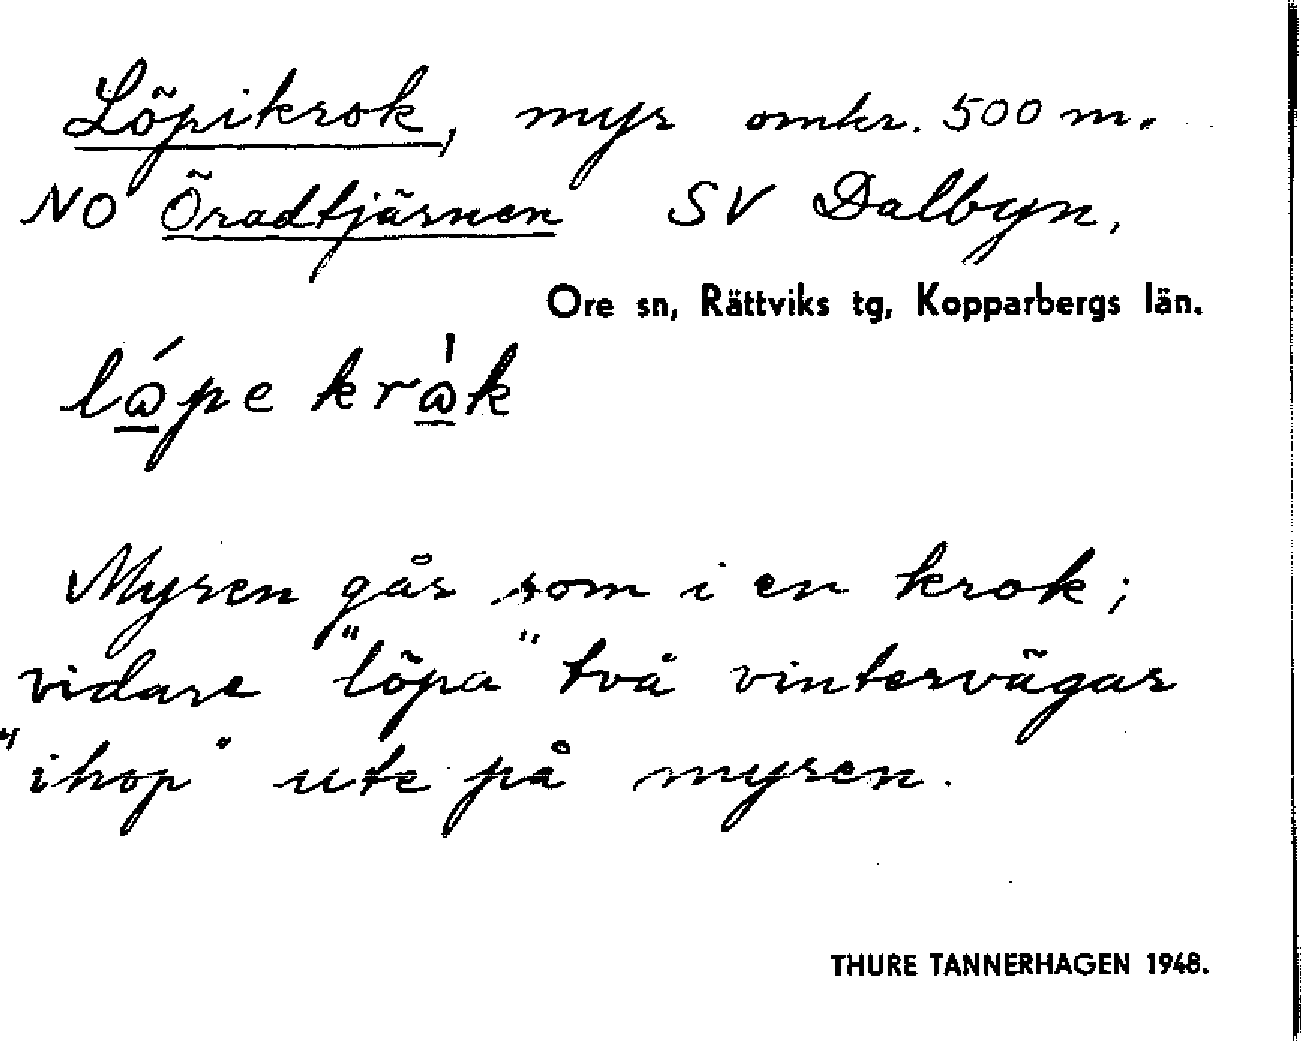 Löpikrok, myr omkr. 500 m.
NO Öradtjärnen SV Dalbyn,
Ore sn, Rättviks tg, Kopparbergs län.
Myren går som i en krok;
vidare "löpa" två vintervägar
"ihop" ute på myren.
THURE TANNERHAGEN 1948.